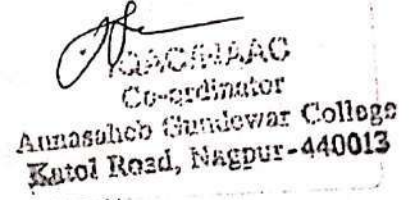 IQAC/NAAC
Co-ordinator
Annasaheb Gundewar College
Katol Road, Nagpur-440013